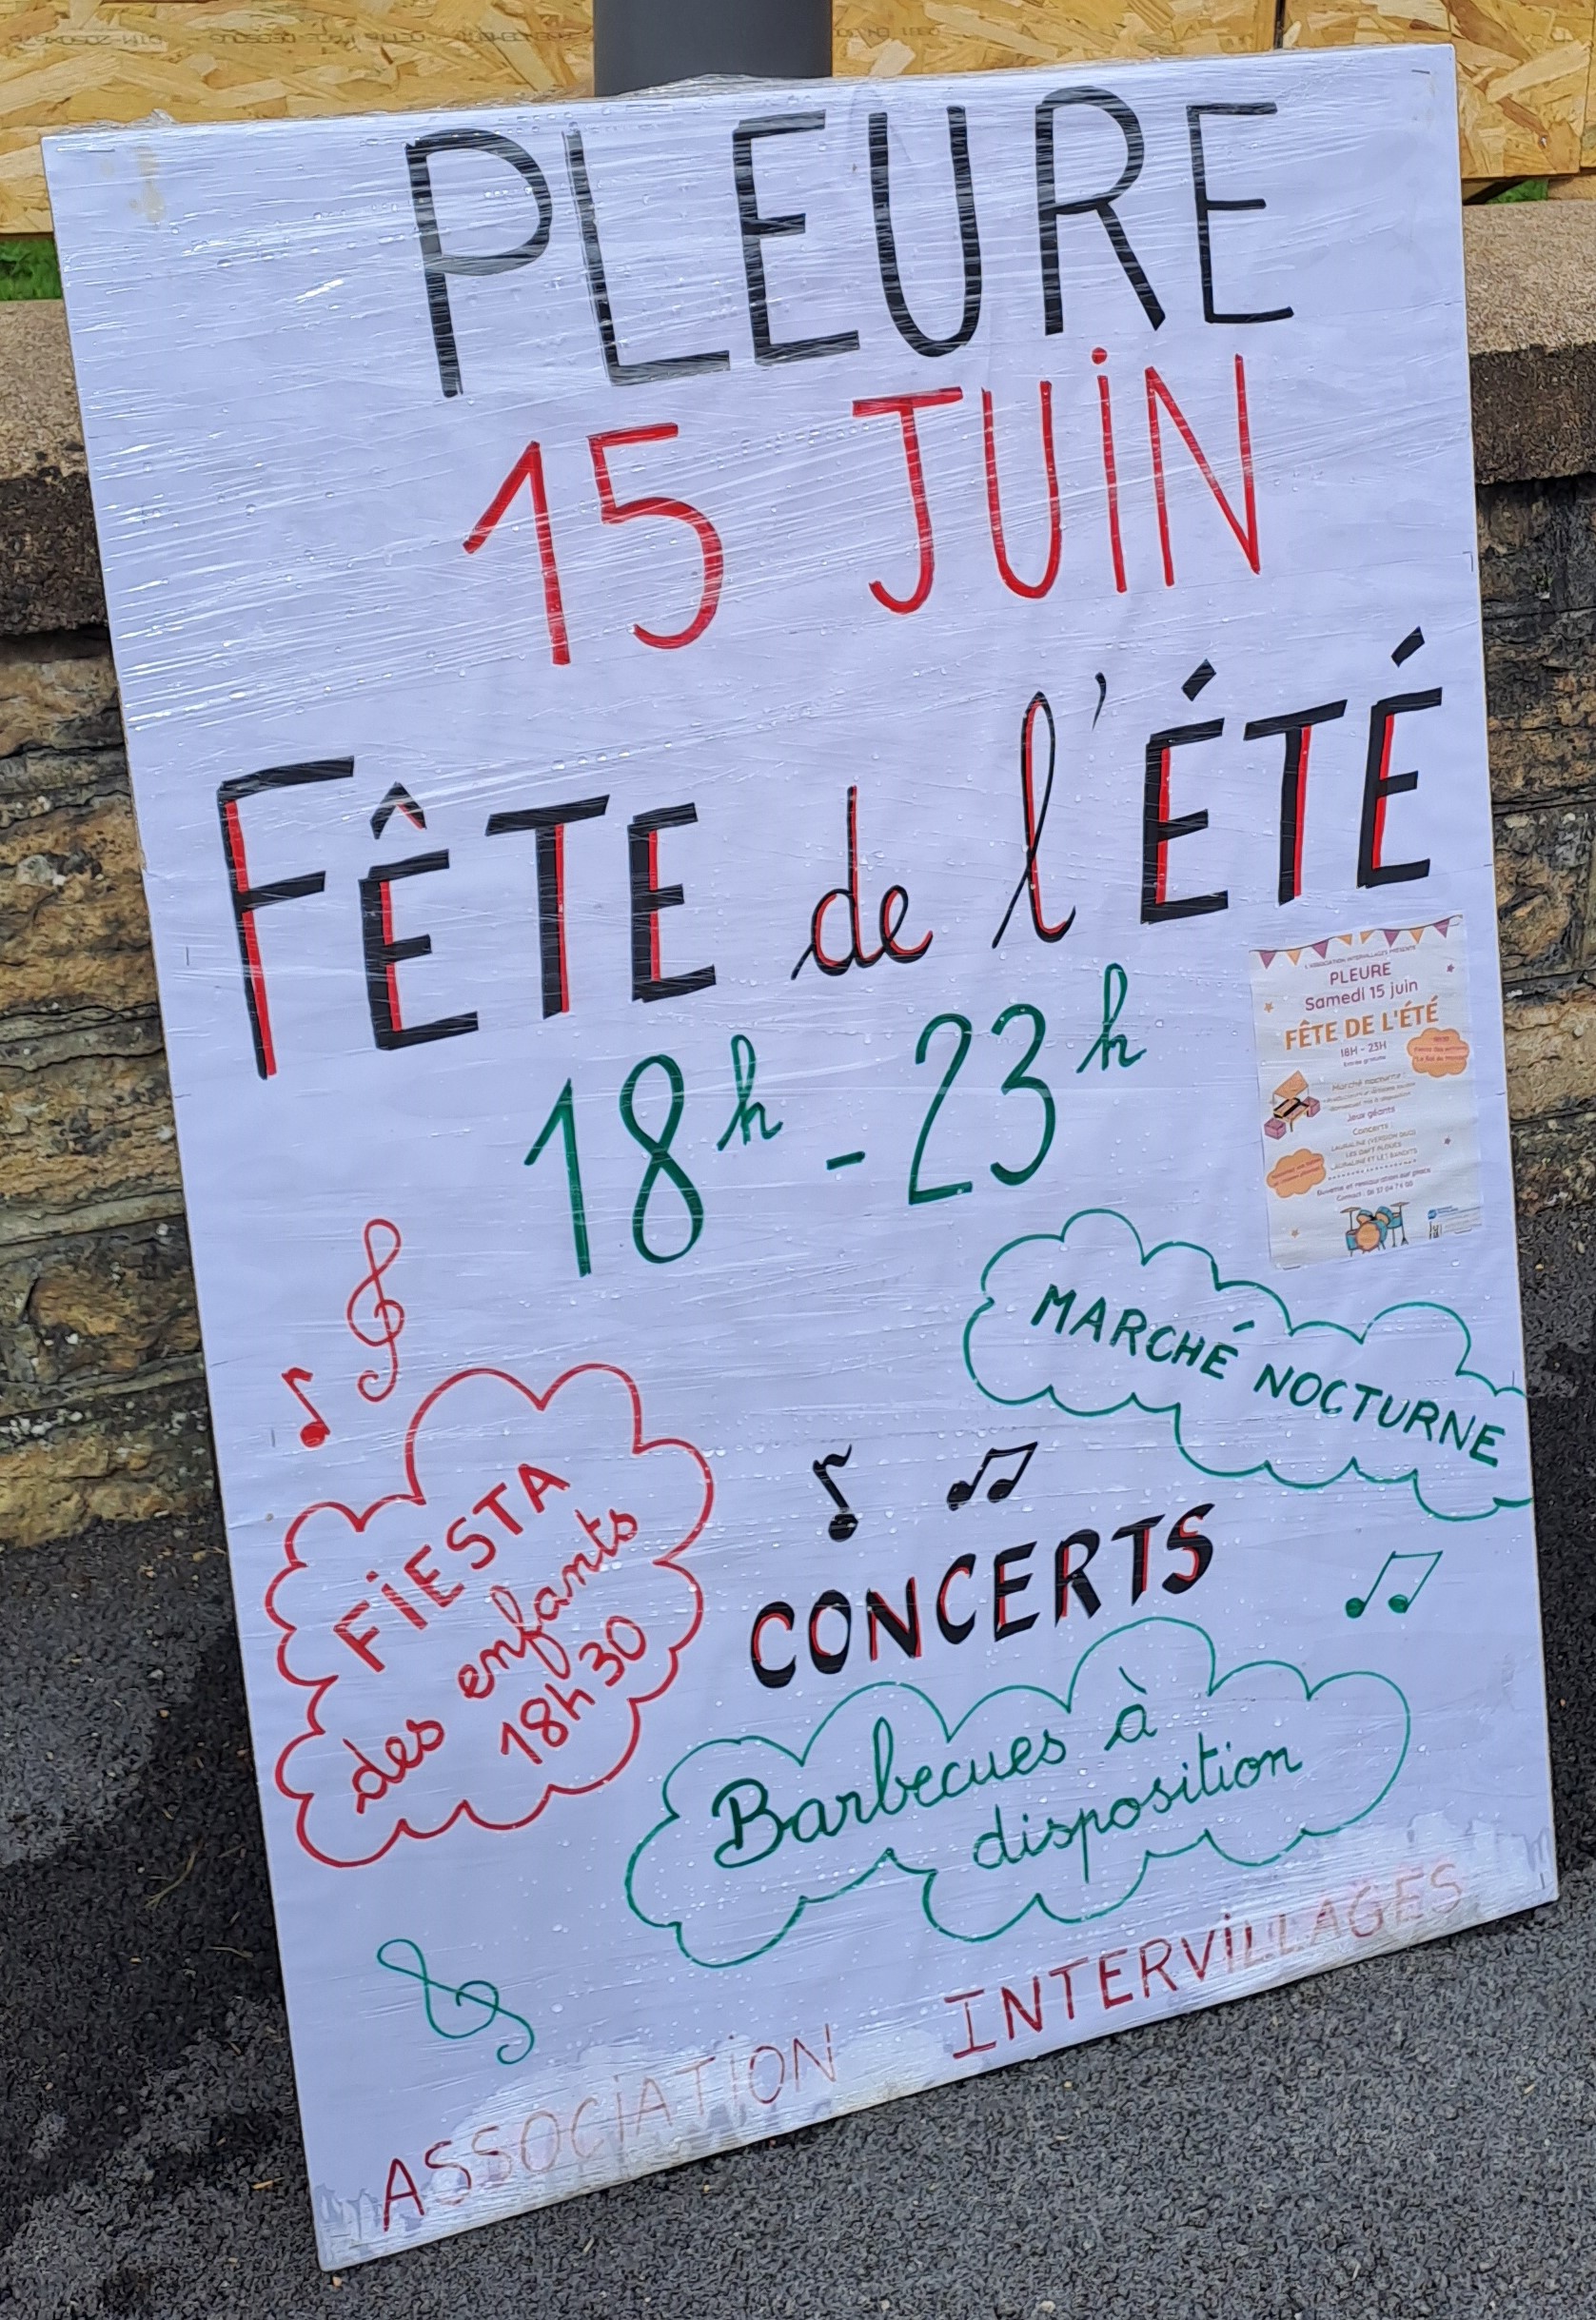 PLEURE
15 JUIN
FÊTE de l'ÉTÉ
18h - 23h
L'ASSOCIATION INTERVILLAGES PRÉSENTE
PLEURE
Samedi 15 juin
FÊTE DE L'ÉTÉ
18H - 23H
Entrée gratuite
Marché nocturne :
Jeux géants
Concerts :
LES DAFT PLOUES
Buvette et restauration sur place
MARCHÉ NOCTURNE
FIESTA
des enfants
18h30
CONCERTS
Barbecues à
disposition
ASSOCIATION INTERVILLAGES